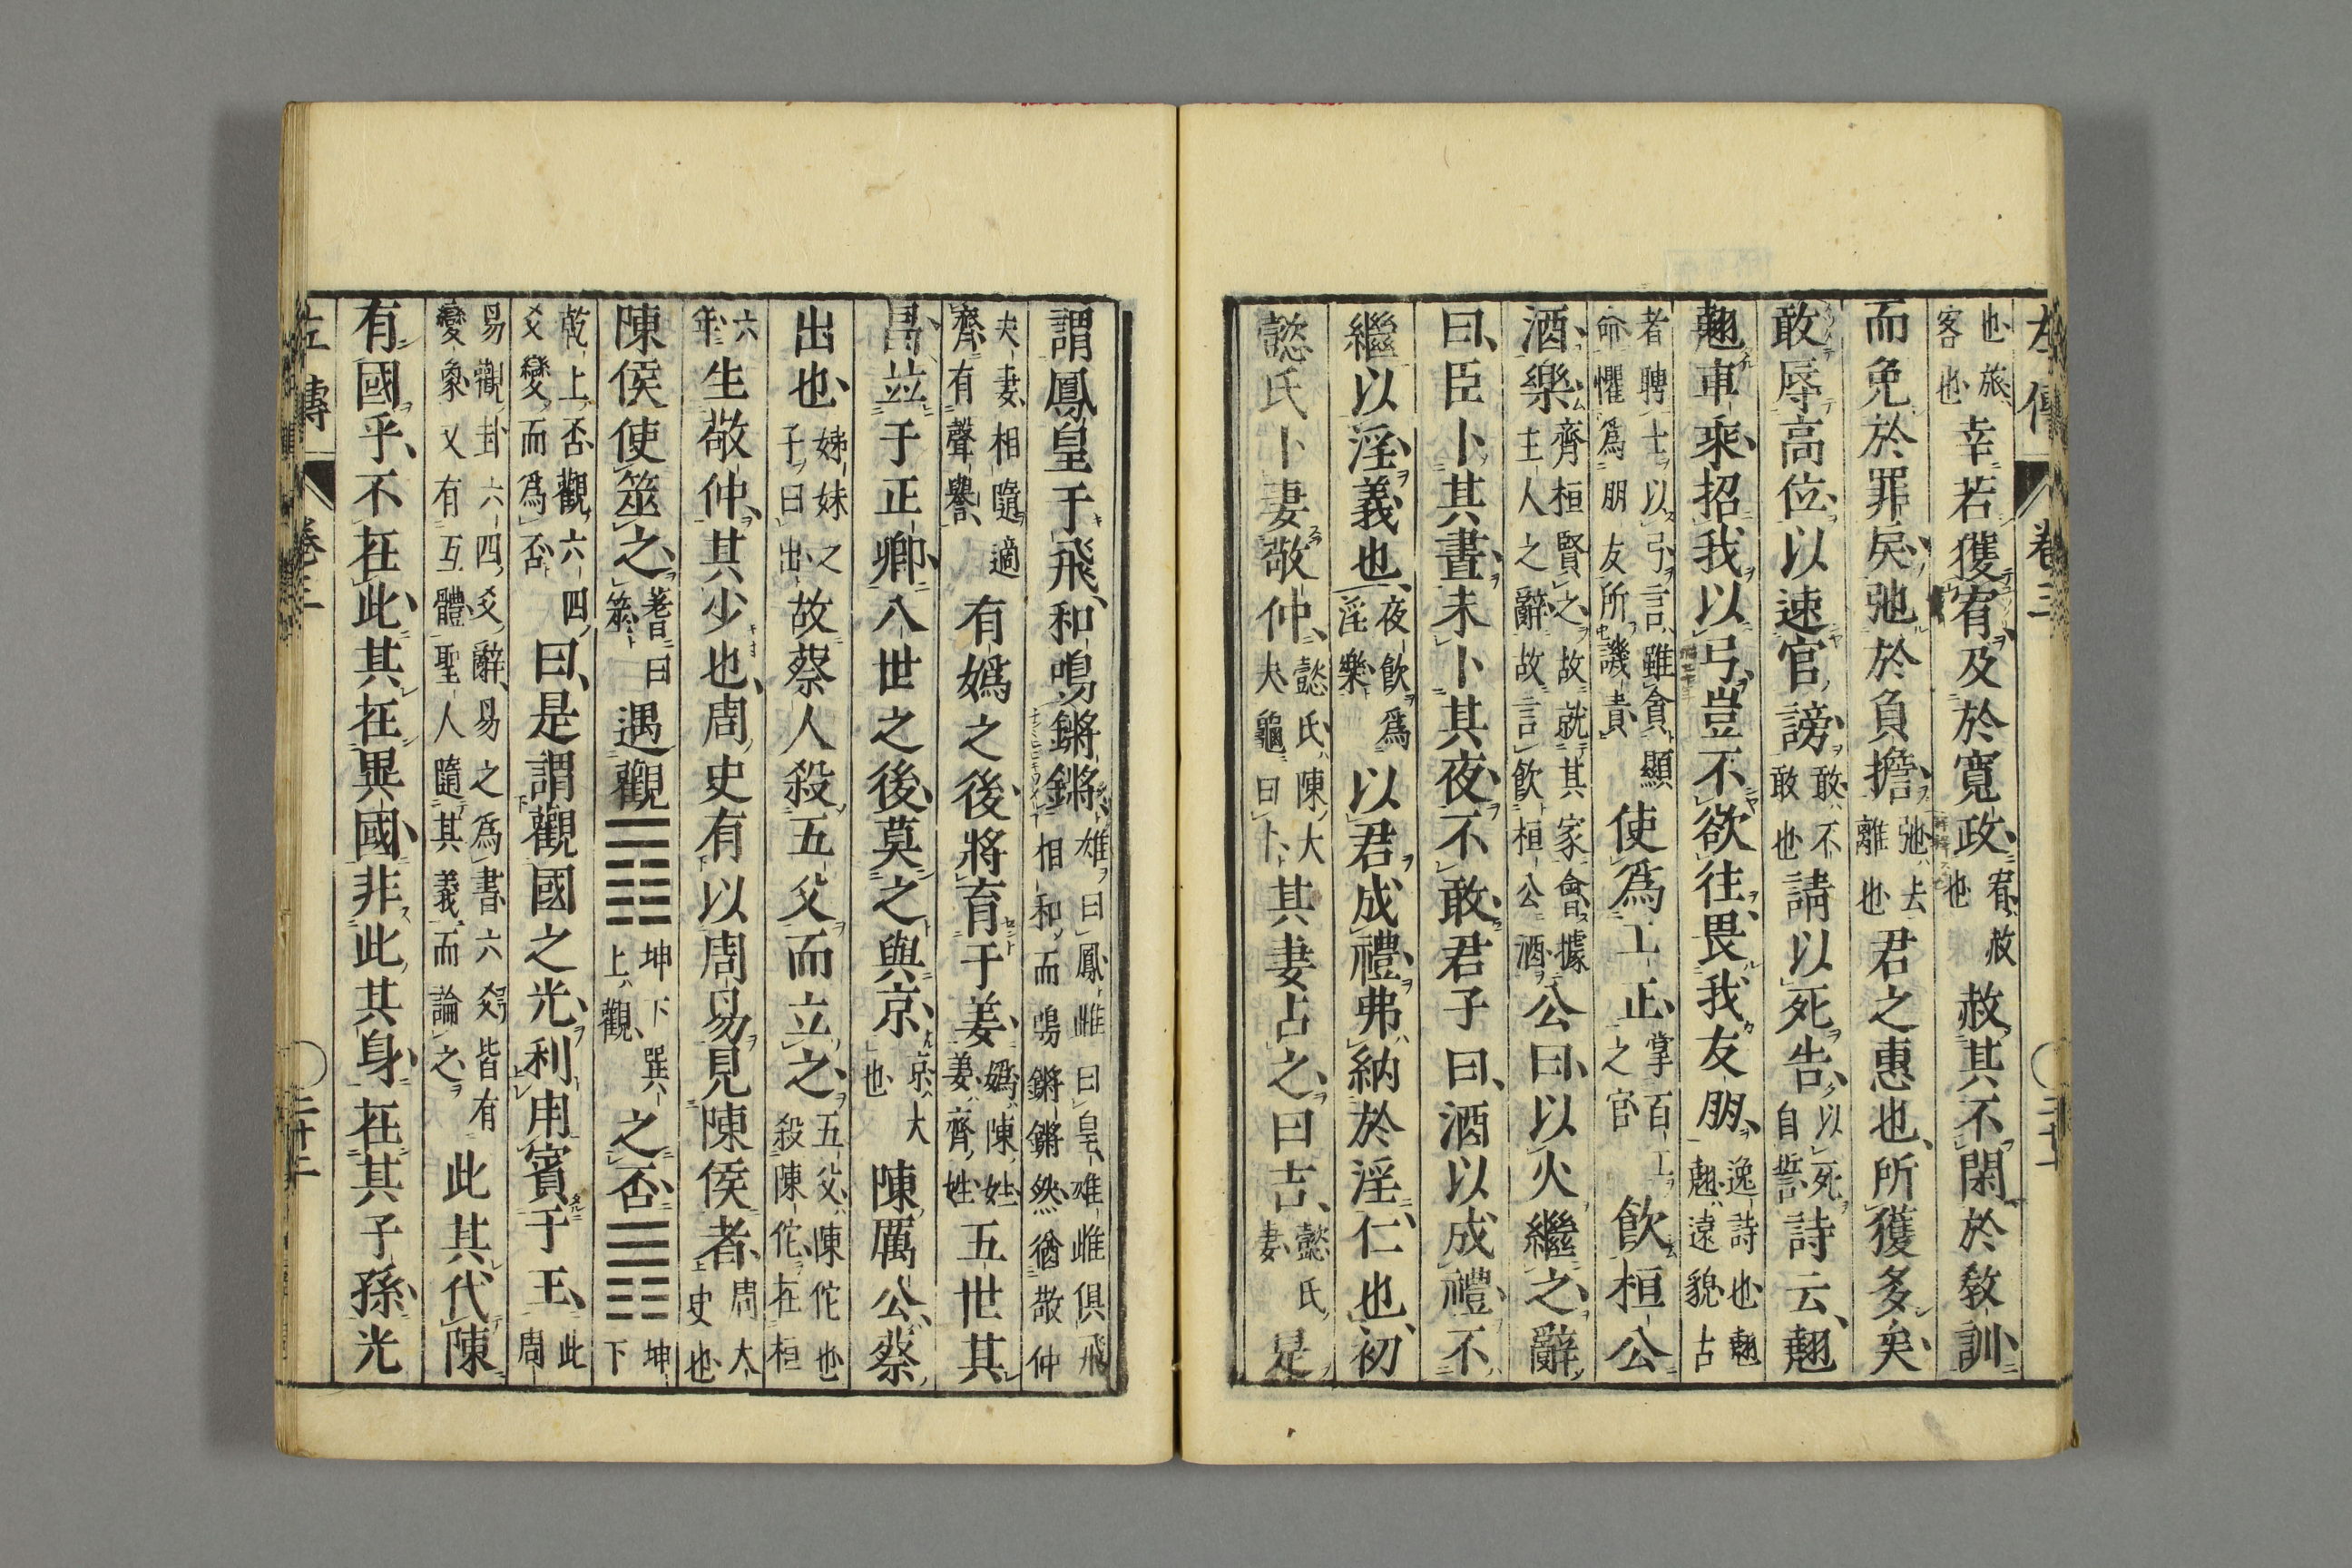 左傳 卷三 二十一
也旅客也幸若獲宥及於寬政宥赦也赦其不閑於敎訓
而免於罪戾弛於負擔弛去離也君之惠也所獲多矣
敢辱高位以速官謗敢不敢也請以死告以死自誓詩云翹
翹車乘招我以弓豈不欲往畏我友朋逸詩也翹翹遠貌古
者聘士以弓言雖貪顯命懼爲朋友所譏責使爲工正掌百工之官飮桓公
酒樂齊桓賢之故就其家會據主人之辭故言飮桓公酒公曰以火繼之辭
曰臣卜其晝未卜其夜不敢君子曰酒以成禮不
繼以淫義也夜飮爲淫樂以君成禮弗納於淫仁也初
懿氏卜妻敬仲懿氏陳大夫龜曰卜其妻占之曰吉懿氏妻是
謂鳳皇于飛和鳴鏘鏘雄曰鳳雌曰皇雄雌俱飛相和而鳴鏘鏘然猶敬仲
夫妻相隨適齊有聲譽有嬀之後將育于姜嬀陳姓姜齊姓五世其
昌並于正卿八世之後莫之與京京大也陳厲公蔡
出也姊妹之子曰出故蔡人殺五父而立之五父陳佗也殺陳佗在桓
六年生敬仲其少也周史有以周易見陳侯者周大史也
陳侯使筮之蓍曰筮曰遇觀䷓坤下巽上觀之否䷋坤下
乾上否觀六四爻變而爲否曰是謂觀國之光利用賓于王此周
易觀卦六四爻辭易之爲書六爻皆有變象又有互體聖人隨其義而論之此其代陳
有國乎不在此其在異國非此其身在其子孫光
左傳 卷三 二十二